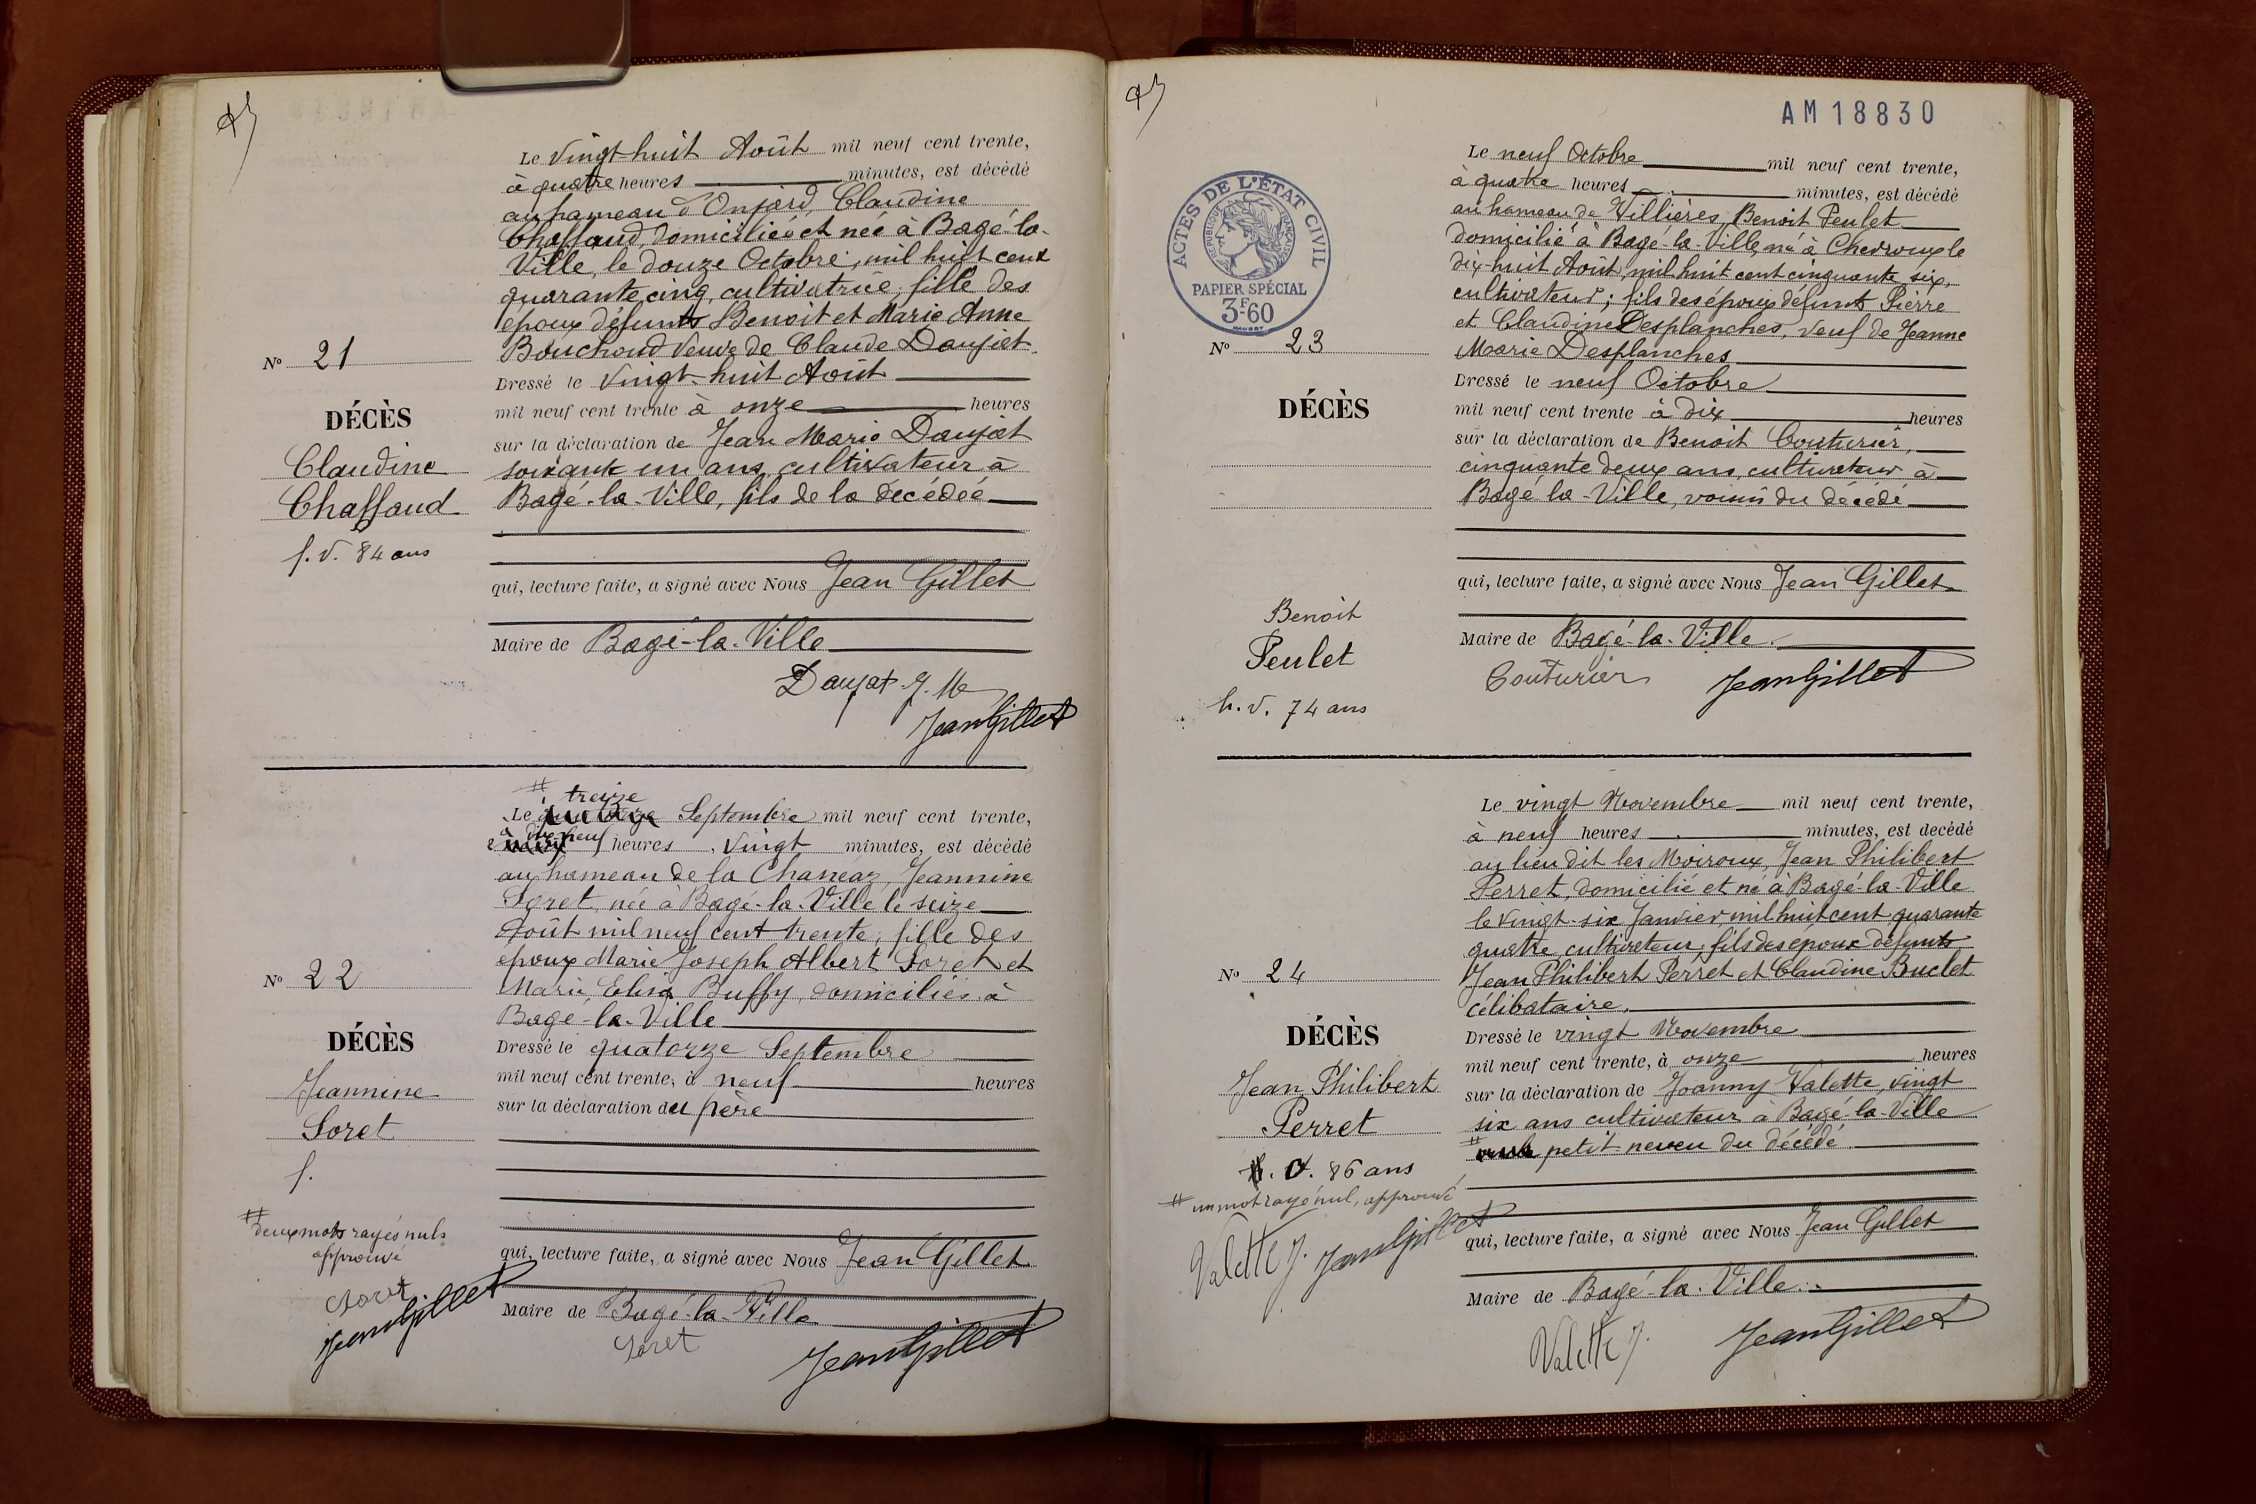 Le vingt-huit Août mil neuf cent trente,
à quatre heures minutes, est décédé
au hameau d'Onjard, Claudine
Chaffaud, domiciliée et née à Bagé-la-
Ville, le douze Octobre, mil huit cent
quarante cinq, cultivatrice, fille des
époux défunts Benoit et Marie Anne
Bouchoud veuve de Claude Daujat.
No 21
Dressé le vingt-huit Août
mil neuf cent trente à onze heures
DÉCÈS
sur la déclaration de Jean Marie Daujat
Claudine
soixante un ans, cultivateur à
Chaffaud
Bagé-la-Ville, fils de la décédée
f. v. 84 ans
qui, lecture faite, a signé avec Nous Jean Gillet
Maire de Bagé-la-Ville
Daujat J. M
Jean Gillet
# treize
Le Septembre mil neuf cent trente,
à dix neuf heures vingt minutes, est décédé
au hameau de la Chaneaz, Jeannine
Loret, née à Bagé-la-Ville le seize
Août mil neuf cent trente, fille des
époux Marie Joseph Albert Loret et
No 22
Marie Elisa Buffy, domiciliés à
Bagé-la-Ville
DÉCÈS
Dressé le quatorze Septembre
mil neuf cent trente, à neuf heures
Jeannine
sur la déclaration du père
Loret
f.
# deux mots rayés nuls
approuvé
Loret
Jean Gillet
qui, lecture faite, a signé avec Nous Jean Gillet
Maire de Bagé-la-Ville
Loret
Jean Gillet
AM 18830
ACTES DE L'ÉTAT CIVIL
RÉPUBLIQUE FRANÇAISE
PAPIER SPÉCIAL
3F.60
Le neuf Octobre mil neuf cent trente,
à quatre heures minutes, est décédé
au hameau de Villières, Benoit Peulet
domicilié à Bagé-la-Ville, né à Chevroux le
dix-huit Août, mil huit cent cinquante six,
cultivateur; fils des époux défunts Pierre
et Claudine Desplanches, veuf de Jeanne
No 23
Marie Desplanches
Dressé le neuf Octobre
DÉCÈS
mil neuf cent trente à dix heures
sur la déclaration de Benoit Couturier,
cinquante deux ans, cultivateur à
Bagé-la-Ville, voisin du décédé
qui, lecture faite, a signé avec Nous Jean Gillet
Benoit
Peulet
h. v. 74 ans
Maire de Bagé-la-Ville.
Couturier
Jean Gillet
Le vingt Novembre mil neuf cent trente,
à neuf heures minutes, est decédé
au lieu dit les Moiroux, Jean Philibert
Perret, domicilié et né à Bagé-la-Ville
le vingt-six Janvier mil huit cent quarante
quatre, cultivateur, fils des époux défunts
No 24
Jean Philibert Perret et Claudine Buclet
célibataire.
DÉCÈS
Dressé le vingt Novembre
mil neuf cent trente, à onze heures
Jean Philibert
sur la déclaration de Joanny Valette, vingt
Perret
six ans cultivateur à Bagé-la-Ville
# petit neveu du décédé
86 ans
# un mot rayé nul, approuvé
Valette J.
Jean Gillet
qui, lecture faite, a signé avec Nous Jean Gillet
Maire de Bagé-la-Ville.
Valette J.
Jean Gillet